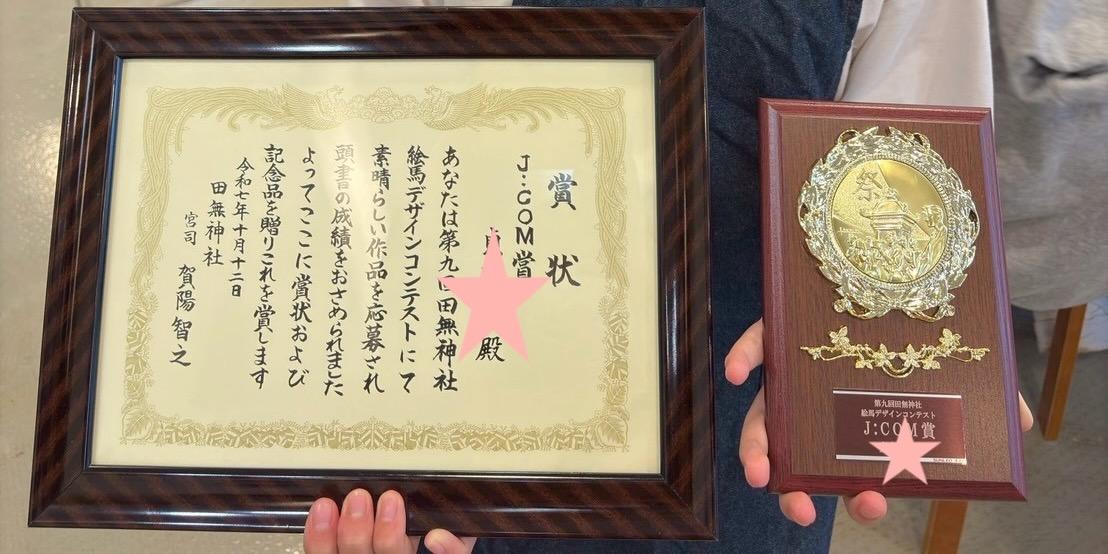 賞状
J:COM賞
殿
あなたは第九回田無神社
絵馬デザインコンテストにて
素晴らしい作品を応募され
頭書の成績をおさめられました
よってここに賞状および
記念品を贈りこれを賞します
令和七年十月十二日
田無神社
宮司 賀陽智之
祭
第九回田無神社
絵馬デザインコンテスト
J:COM賞